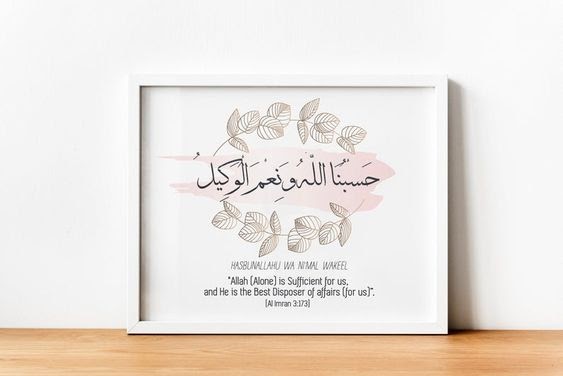 حَسْبُنَا اللَّهُ وَنِعْمَ الْوَكِيلُ
HASBUNALLAHU WA NI'MAL WAKEEL
"Allah (Alone) is Sufficient for us,
and He is the Best Disposer of affairs (for us)".
(Al Imran 3:173)